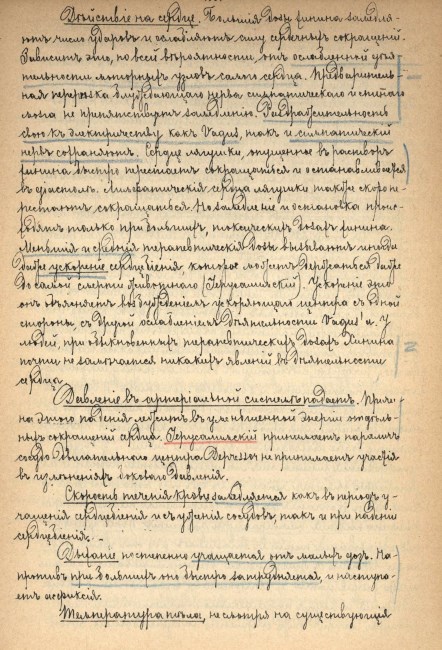 Дѣйствіе на сердце. Большія дозы хинина замедля-
ютъ число ударовъ и ослабляютъ силу сердечныхъ сокращеній.
Зависитъ это, по всей вѣроятности отъ ослабленной дѣя-
тельности моторныхъ узловъ самого сердца. Предваритель-
ная перерѣзка блуждающаго нерва, симпатическаго и спинного
мозга не препятствуетъ замедленію. Раздражительность
свою къ электричеству какъ Vagus, такъ и симпатическій
нервъ сохраняютъ. Сердце лягушки, опущенное въ растворъ
хинина быстро перестаетъ сокращаться и останавливается
въ діастолѣ. Лимфатическія сердца лягушки также скоро пе-
рестаютъ сокращаться. Но замедленіе и остановка проис-
ходятъ только при большихъ, токсическихъ дозахъ хинина.
Меньшія и среднія терапевтическія дозы вызываютъ иногда
даже ускореніе сердцебіенія, которое можетъ держаться даже
до самой смерти животнаго (Іерусалимскій). Ускореніе это
онъ объясняетъ возбужденіемъ ускоряющаго центра съ одной
стороны, съ другой ослабленіемъ дѣятельности Vagus'а. У
людей, при обыкновенныхъ терапевтическихъ дозахъ Хинина
почти не замѣчается никакихъ явленій въ дѣятельности
сердца.
Давленіе въ артеріальной системѣ падаетъ. Причи-
на этого паденія лежитъ въ уменьшенной энергіи отдѣль-
ныхъ сокращеній сердца. Іерусалимскій принимаетъ параличъ
сосудодвигательнаго центра. Depressor не принимаетъ участія
въ измѣненіяхъ бокового давленія.
Скорость теченія крови замедляется какъ въ періодъ у-
чащенія сердцебіенія и съуженія сосудовъ, такъ и при паденіи
сердцебіенія.
Дыханіе постепенно учащается отъ малыхъ дозъ. На-
противъ при большихъ оно быстро затрудняется, и наступа-
етъ асфиксія.
Температура тѣла, не смотря на существующія